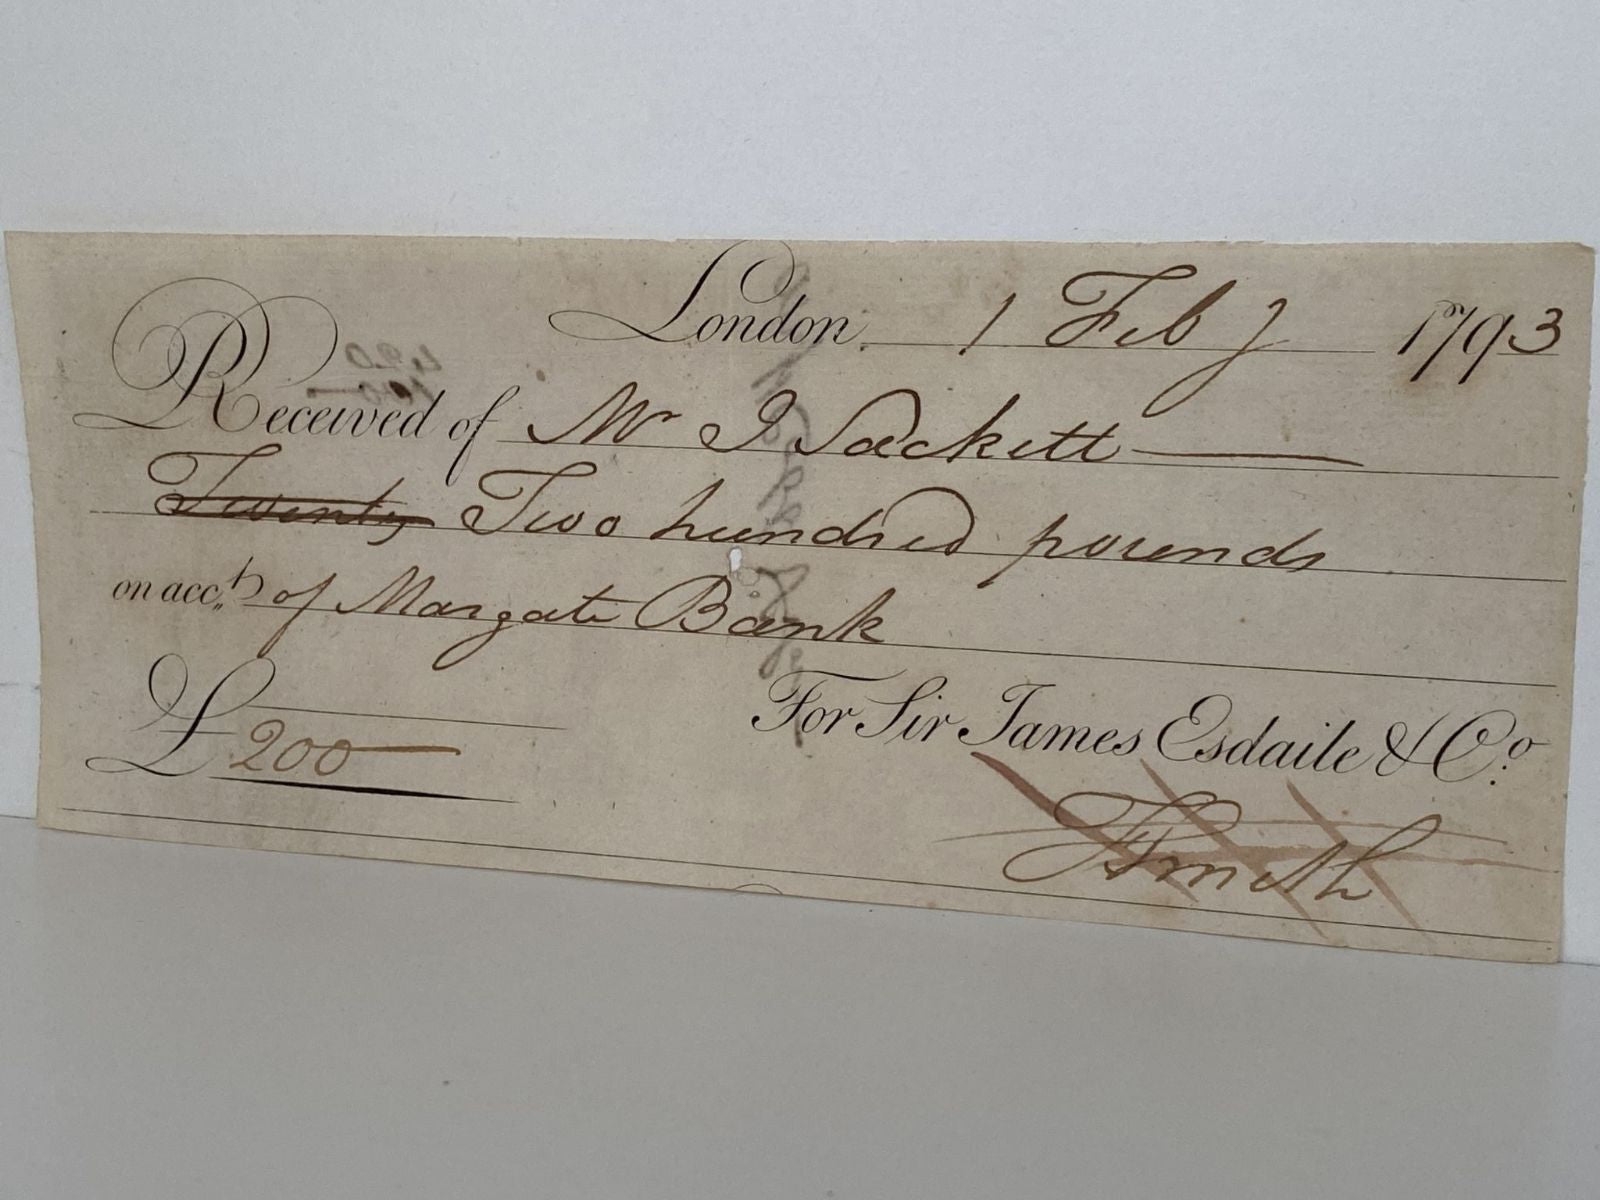 London 1 Feby 1793
Received of Mr J Sackett
Twenty Two hundred pounds
on acct. of Margate Bank
£ 200
For Sir James Esdaile & Co.
Smith